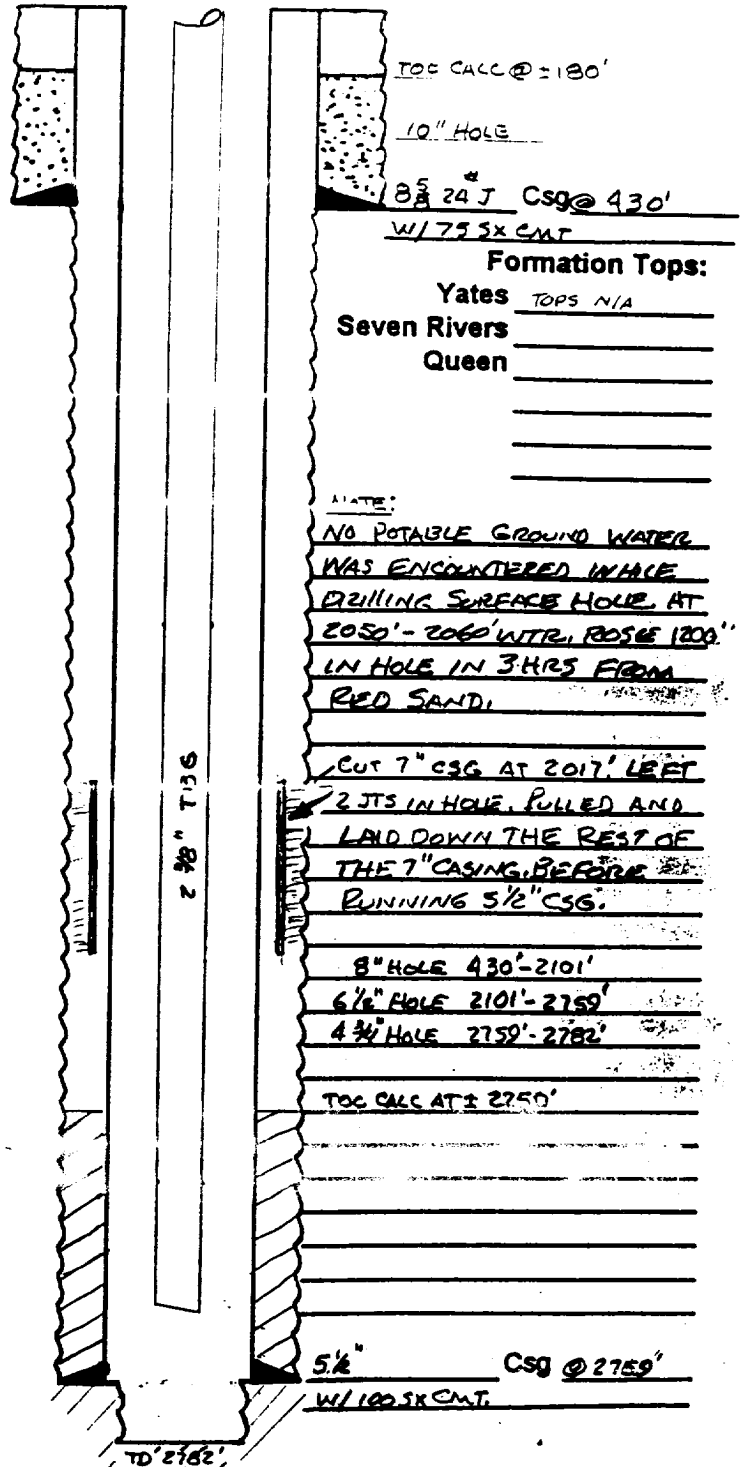 TOC CALC @ ± 180'
10" HOLE
8 5/8 24# J Csg @ 430'
W/ 75 SX CMT
Formation Tops:
Yates TOPS N/A
Seven Rivers
Queen
NOTE:
NO POTABLE GROUND WATER
WAS ENCOUNTERED WHILE
DRILLING SURFACE HOLE. AT
2050'-2060' WTR. ROSE 1200'
IN HOLE IN 3 HRS FROM
RED SAND.
CUT 7" CSG AT 2017'. LEFT
2 JTS IN HOLE. PULLED AND
LAID DOWN THE REST OF
THE 7" CASING. BEFORE
RUNNING 5 1/2" CSG.
2 3/8" TBG
8" HOLE 430'-2101'
6 1/2" HOLE 2101'-2759'
4 3/4" HOLE 2759'-2782'
TOC CALC AT ± 2250'
5 1/2" Csg @ 2759'
W/ 100 SX CMT.
TD' 2782'